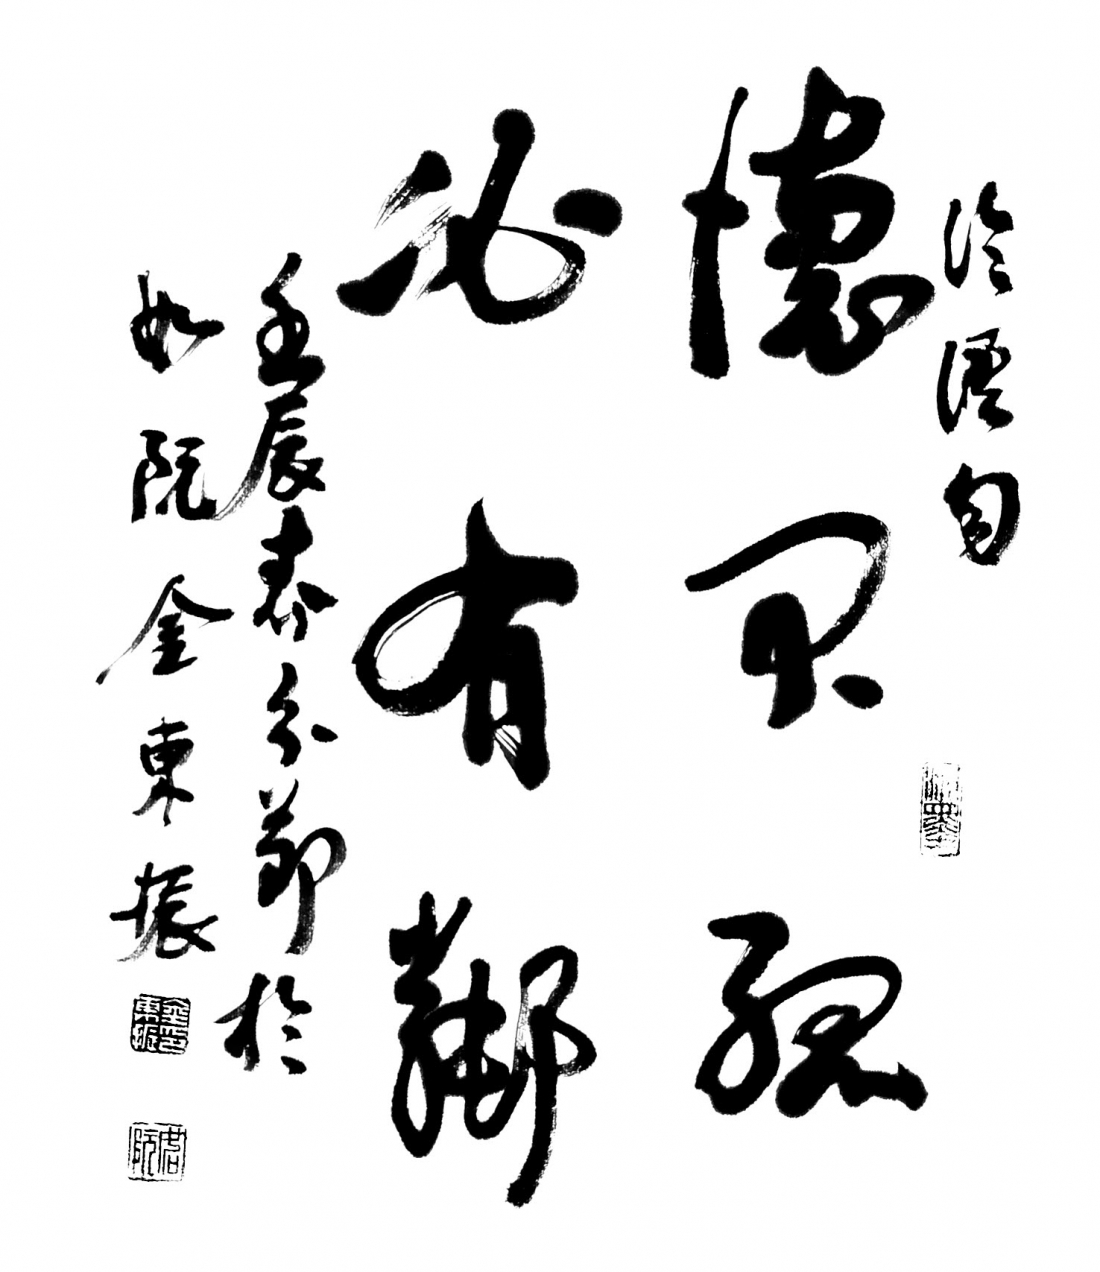 論語句
德不孤
必有鄰
壬辰春分節於
阮金東振
金東振印